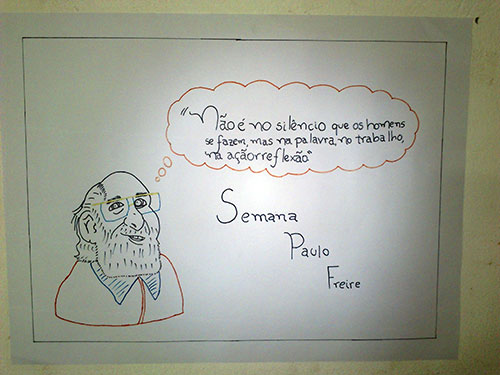 "Não é no silêncio que os homens
se fazem, mas na palavra, no trabalho,
na açãorreflexão"
Semana
Paulo
Freire